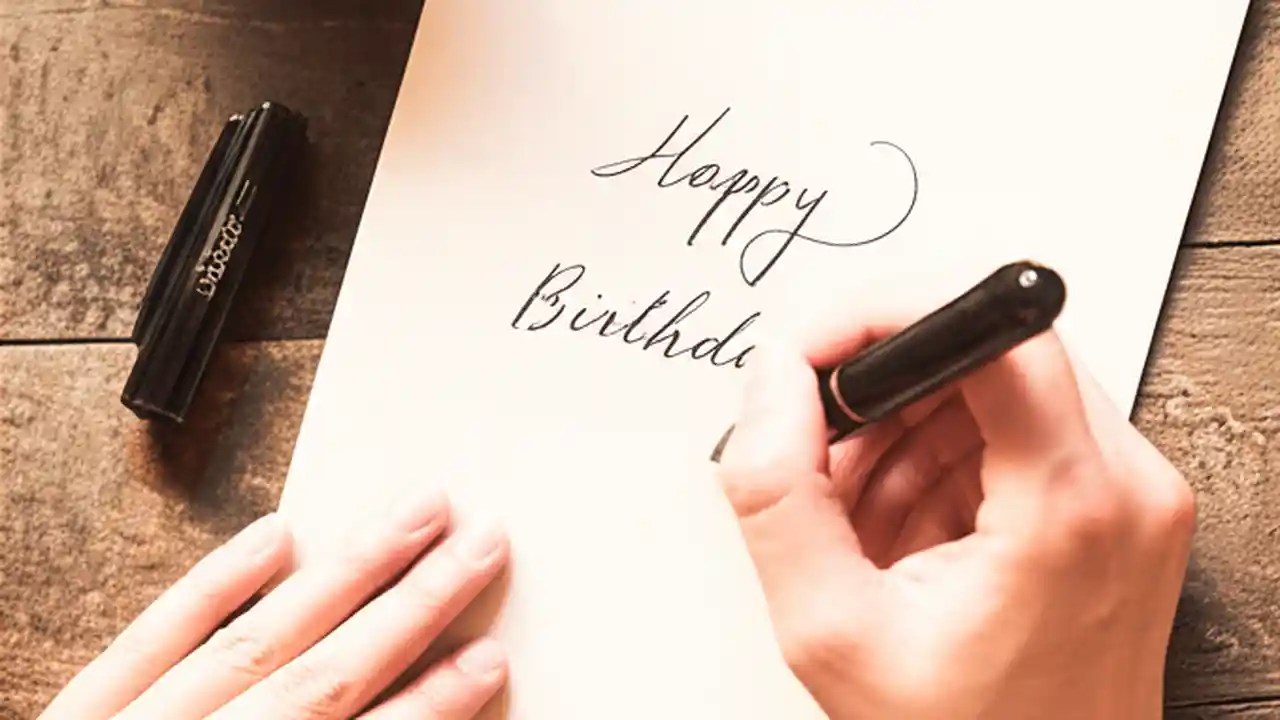 Happy
Birthda